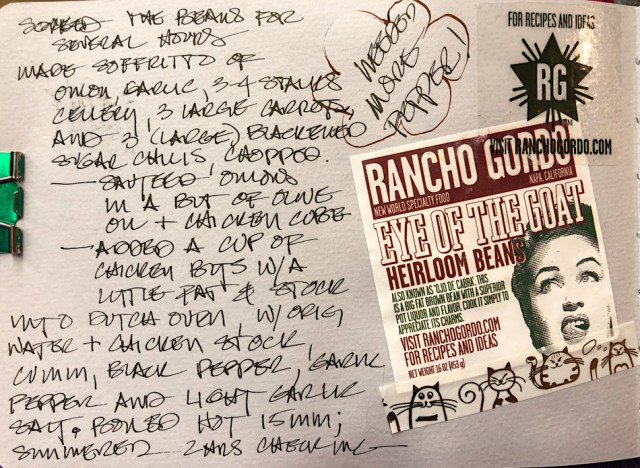 SOAKED THE BEANS FOR
SEVERAL HOURS
MADE SOFFRITTO OF
ONION, GARLIC, 3-4 STALKS
CELERY, 3 LARGE CARROTS,
AND 3 (LARGE) BLACKENED
SUGAR CHILIS, CHOPPED.
— SAUTEED ONIONS
IN A BIT OF OLIVE
OIL + CHICKEN CUBE
— ADDED A CUP OF
CHICKEN BITS W/A
LITTLE FAT & STOCK
INTO DUTCH OVEN, W/ORIG
WATER + CHICKEN STOCK,
CUMIN, BLACK PEPPER, GARLIC
PEPPER AND LIGHT GARLIC
SALT. BOILED HOT 15MIN;
SIMMERED 2 HRS CHECKING
NEEDED
MORE
PEPPER!
FOR RECIPES AND IDEAS
RG
TM
VISIT RANCHOGORDO.COM
RANCHO GORDO
NEW WORLD SPECIALTY FOOD
NAPA, CALIFORNIA
EYE OF THE GOAT
HEIRLOOM BEANS
ALSO KNOWN AS "OJO DE CABRA", THIS
IS A BIG FAT BROWN BEAN WITH A SUPERIOR
POT LIQUOR AND FLAVOR. COOK IT SIMPLY TO
APPRECIATE ITS CHARMS.
VISIT RANCHOGORDO.COM
FOR RECIPES AND IDEAS
NET WEIGHT 16 OZ (453 g)